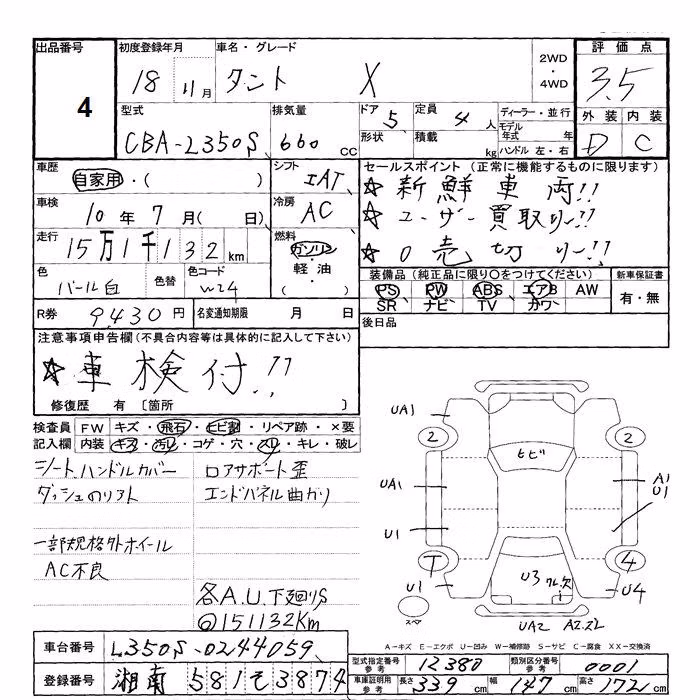 出品番号
4
初度登録年月
18 11月
車名・グレード
タント X
2WD
・
4WD
評価点
3.5
型式
CBA-L350S
排気量
660 CC
ドア
5
定員
4人
形状
積載
kg
ディーラー・並行
モデル年式 年
ハンドル 左・右
外装 内装
D C
車歴
自家用・( )
シフト
IAT
セールスポイント (正常に機能するものに限ります)
☆新鮮車両!!
☆ユーザー買取り!!
☆0売切り!!
車検
10年7月( 日)
冷房
AC
走行
15万1千132km
燃料
ガソリン
・軽油・
( )
色
パール白
色替
色コード
W24
装備品 (純正品に限り○をつけてください)
PS PW ABS エアB AW
SR ナビ TV カワ
新車保証書
有・無
R券 9,430円
名変通知期限 月 日
後日品
注意事項申告欄(不具合内容等は具体的に記入して下さい)
☆車検付!!
修復歴 有 〔箇所 〕
検査員記入欄
FW キズ・飛石・ヒビ割・リペア跡・×要
内装 キズ・汚レ・コゲ・穴・スリ・キレ・破レ
シートハンドルカバー
ダッシュのリフト
一部規格外ホイール
AC不良
ロアサポート歪
エンドパネル曲がり
各A.U.下廻りS
@151132Km
UA1
2
2
ヒビ
UA1
A1
U1
U1
T
4
U1
U3
U4
スペア
UA2
A-キズ E-エクボ U-凹み W-補修跡 S-サビ C-腐食 XX-交換済
車台番号 L350S-0244059
登録番号 湘南 581 そ 3874
型式指定番号参考 12380
類別区分番号参考 0001
車庫証明用参考 長さ 339cm 幅 147cm 高さ 172cm